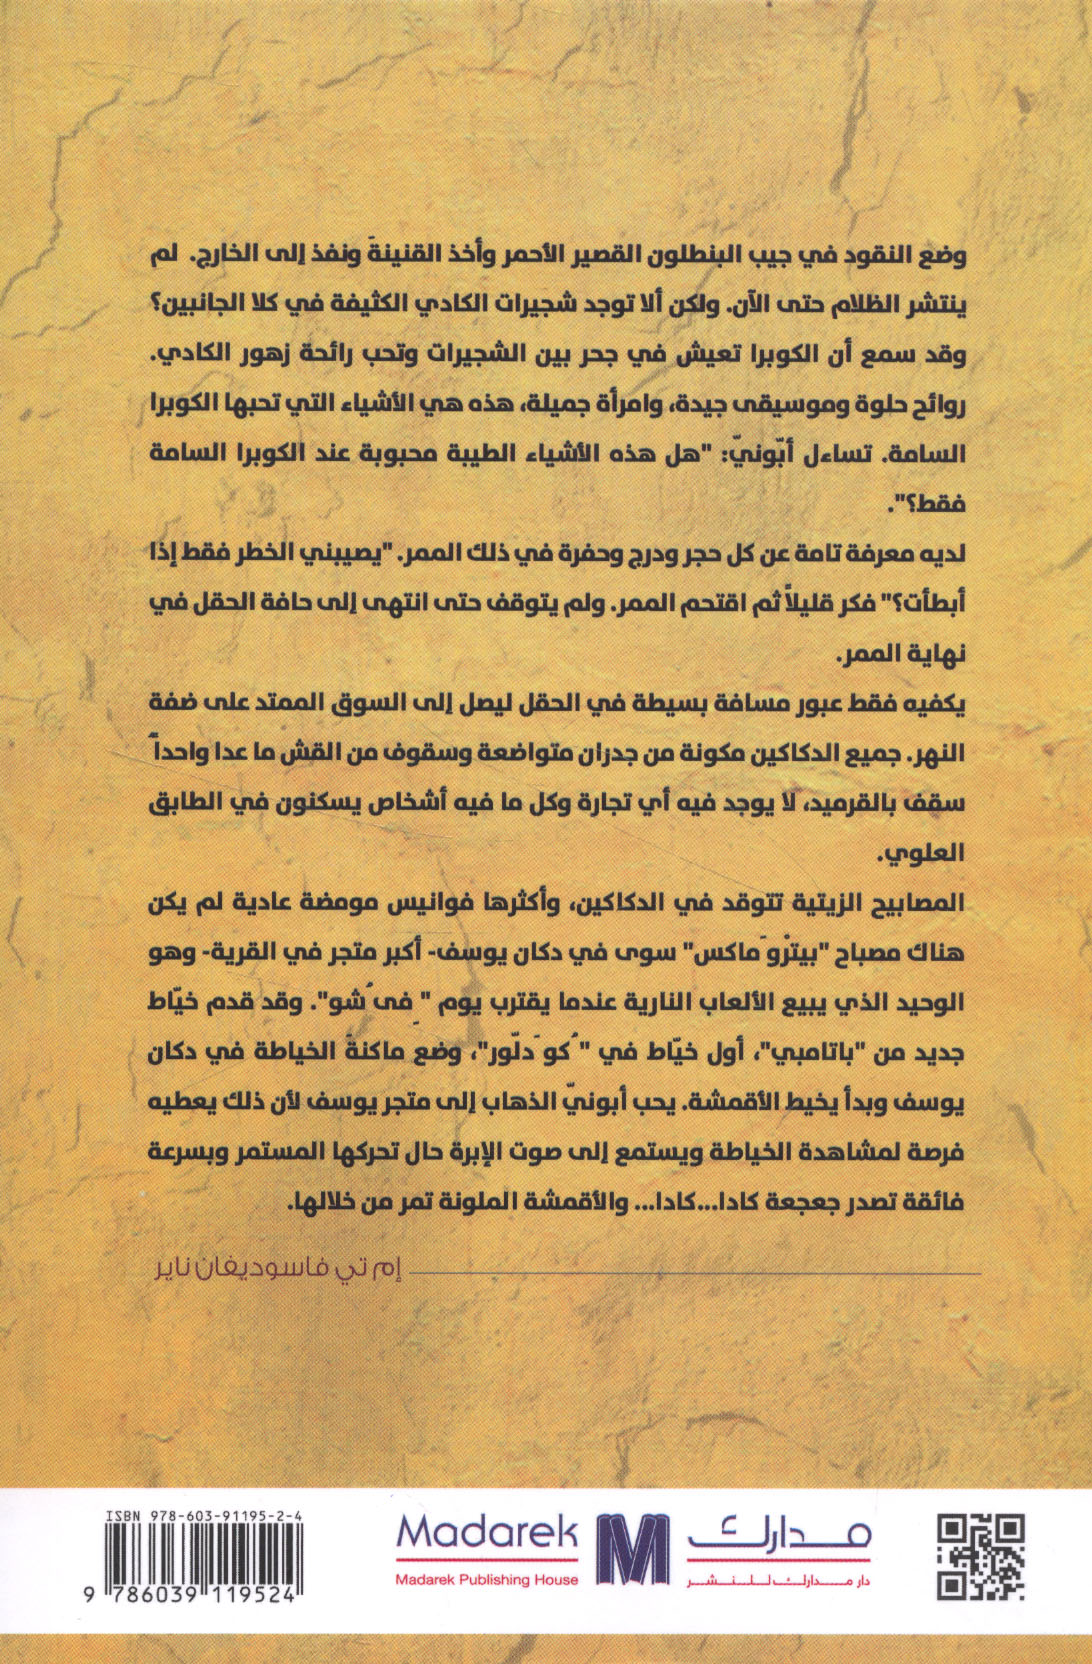 وضع النقود في جيب البنطلون القصير الأحمر وأخذ القنينةَ ونفذ إلى الخارج. لم
ينتشر الظلام حتى الآن. ولكن ألا توجد شجيرات الكادي الكثيفة في كلا الجانبين؟
وقد سمع أن الكوبرا تعيش في جحر بين الشجيرات وتحب رائحة زهور الكادي.
روائح حلوة وموسيقى جيدة، وامرأة جميلة، هذه هي الأشياء التي تحبها الكوبرا
السامة. تساءل أبّونيّ: "هل هذه الأشياء الطيبة محبوبة عند الكوبرا السامة
فقط؟".
لديه معرفة تامة عن كل حجر ودرج وحفرة في ذلك الممر. "يصيبني الخطر فقط إذا
أبطأت؟" فكر قليلاً ثم اقتحم الممر. ولم يتوقف حتى انتهى إلى حافة الحقل في
نهاية الممر.
يكفيه فقط عبور مسافة بسيطة في الحقل ليصل إلى السوق الممتد على ضفة
النهر. جميع الدكاكين مكونة من جدران متواضعة وسقوف من القش ما عدا واحداً
سقف بالقرميد، لا يوجد فيه أي تجارة وكل ما فيه أشخاص يسكنون في الطابق
العلوي.
المصابيح الزيتية تتوقد في الدكاكين، وأكثرها فوانيس مومضة عادية لم يكن
هناك مصباح "بيتْروَماكس" سوى في دكان يوسف- أكبر متجر في القرية- وهو
الوحيد الذي يبيع الألعاب النارية عندما يقترب يوم " فِىُشو". وقد قدم خيّاط
جديد من "باتامبي"، أول خيّاط في "ُكوَدلّور"، وضع ماكنةَ الخياطة في دكان
يوسف وبدأ يخيط الأقمشة. يحب أبونيّ الذهاب إلى متجر يوسف لأن ذلك يعطيه
فرصة لمشاهدة الخياطة ويستمع إلى صوت الإبرة حال تحركها المستمر وبسرعة
فائقة تصدر جعجعة كادا...كادا... والأقمشة الملونة تمر من خلالها.
إم تي فاسوديفان ناير
ISBN 978-603-91195-2-4
9 786039 119524
Madarek
Madarek Publishing House
مدارك
دار مدارك للنشر